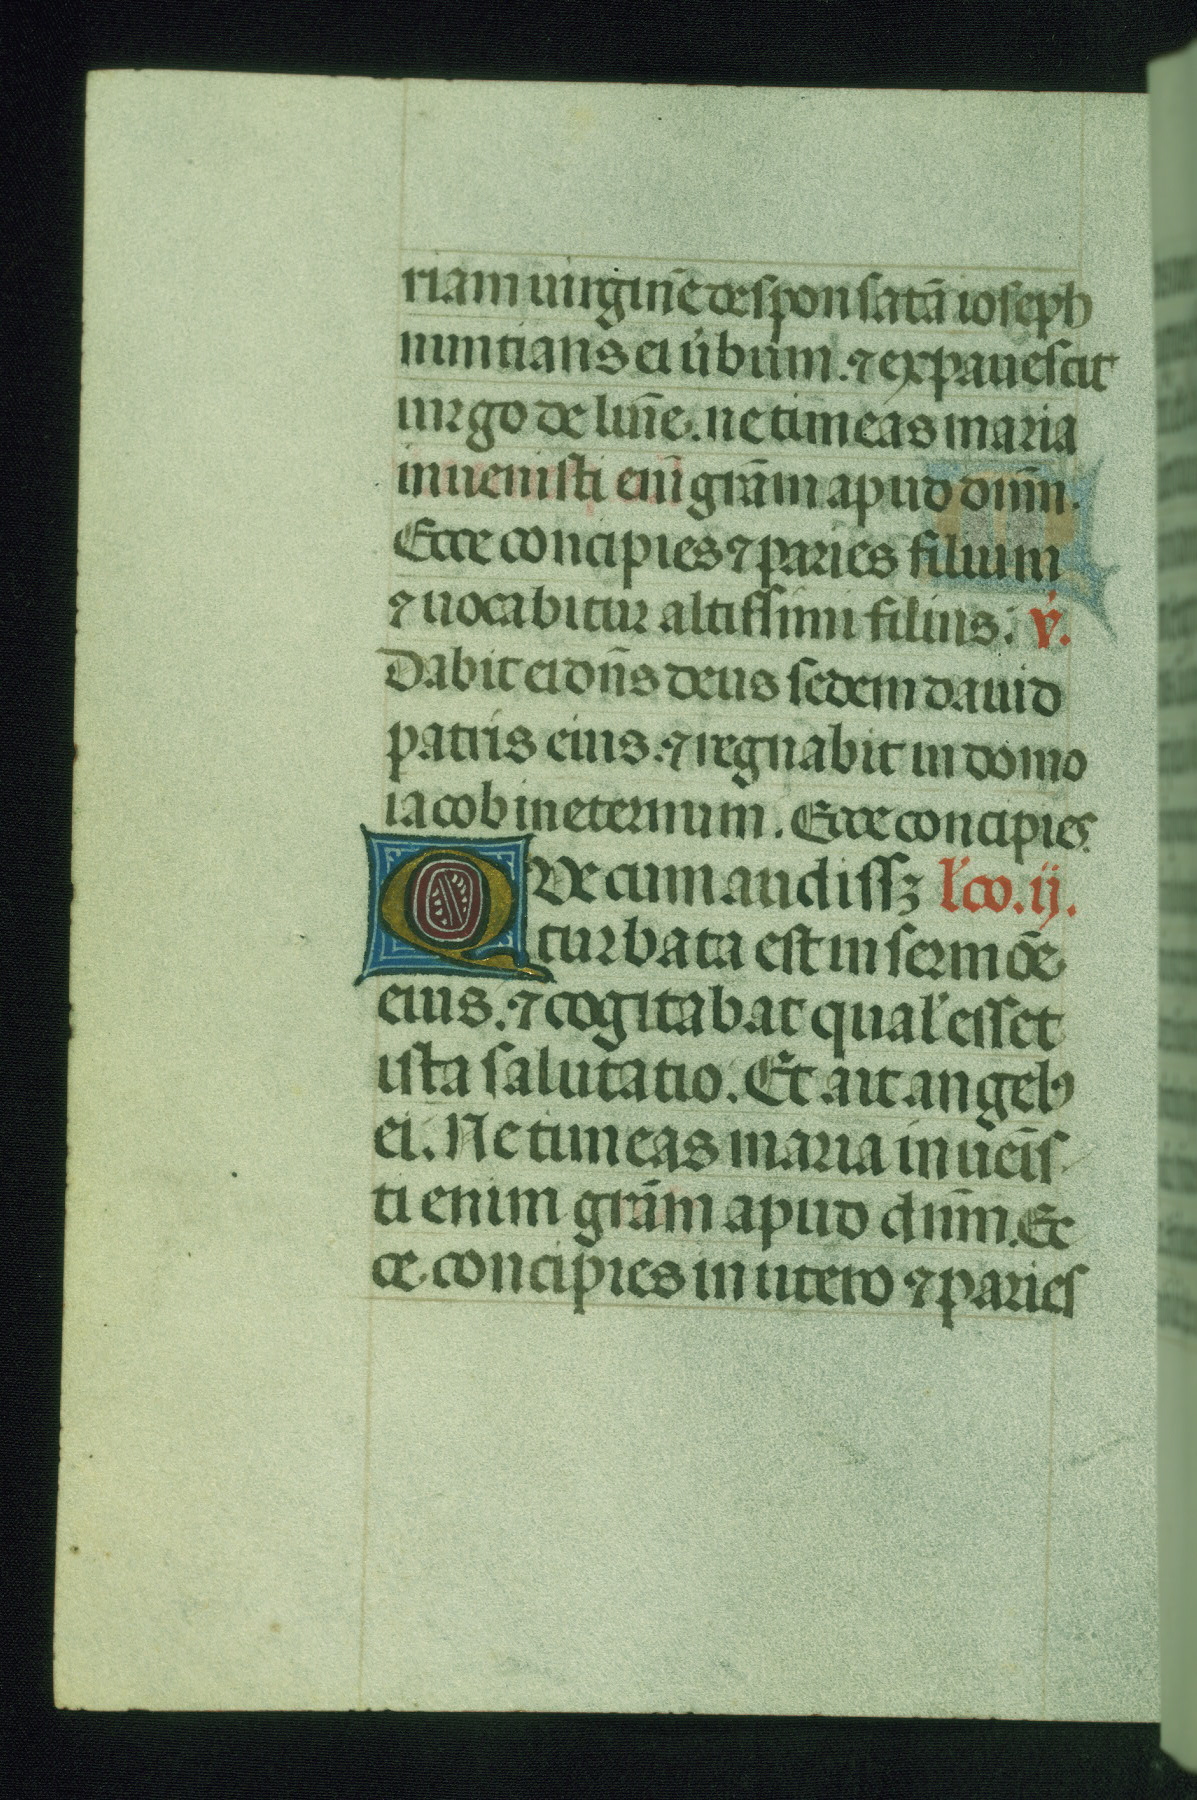 riam uirginē desponsatā ioseph
nuntians ei u̾bum. ⁊ expauescit
uirgo de lum̄e. ne timeas maria
inuenisti eni̅ grām apud dnm̄.
Ecce concipies ⁊ paries filium
⁊ uocabitur altissimi filius. v̾.
Dabit ei dn̄s deus sedem dauid
patris eius. ⁊ regnabit in domo
iacob in eternum. Ecce concipies.
QVe cum audissꝫ lc̄o. ij.
turbata est in sermōe
eius. ⁊ cogitabat qual̾ esset
ista salutatio. Et ait angelꝰ
ei. Ne timeas maria inuēis
ti enim grām apud dnm̄. Ec
ce concipies in utero ⁊ paries